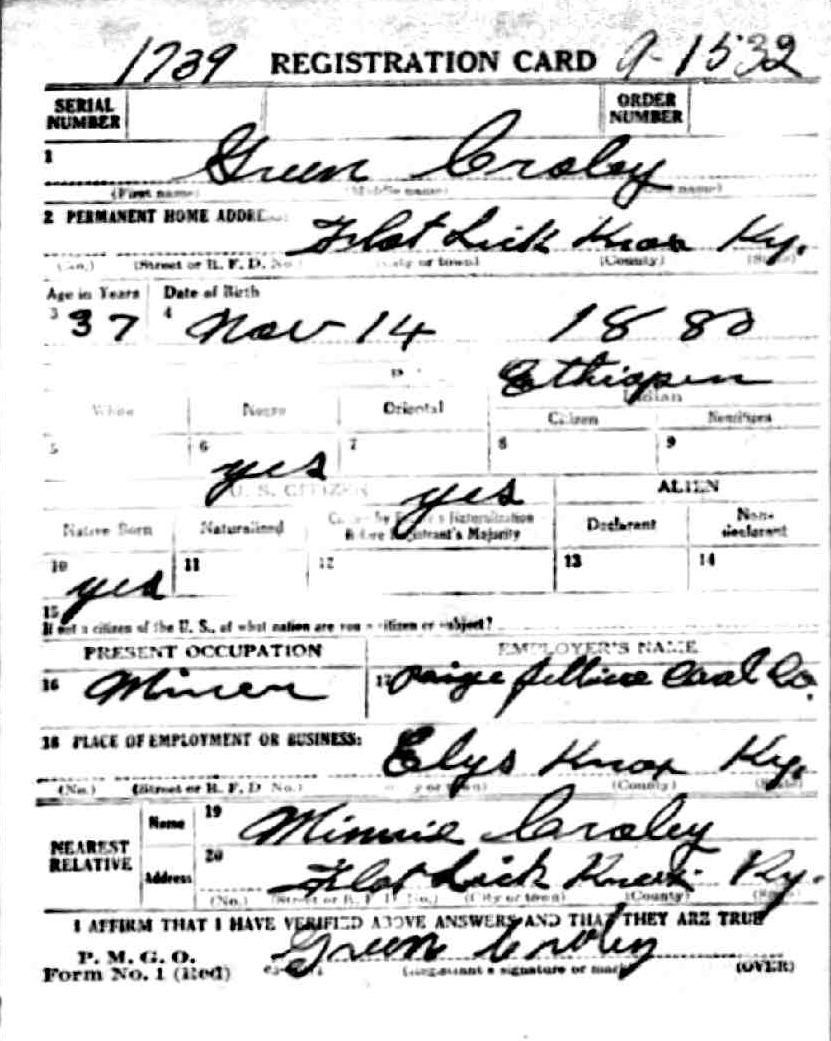 1739 REGISTRATION CARD A-1532
SERIAL NUMBER ORDER NUMBER
1 Green Croley
(First name) (Middle name) (Last name)
2 PERMANENT HOME ADDRESS: Flat Lick Knox Ky.
(No.) (Street or R. F. D. No.) (City or town) (County) (State)
Age in Years Date of Birth
3 37 4 Nov 14 1880
Ethiopen
White Negro Oriental Indian
Citizen Noncitizen
5 6 yes 7 8 9
U. S. CITIZEN yes ALIEN
Native Born Naturalized Citizen by Father's Naturalization Before Registrant's Majority Declarant Non-declarant
10 yes 11 12 13 14
15
If not a citizen of the U. S., of what nation are you a citizen or subject?
PRESENT OCCUPATION EMPLOYER'S NAME
16 Miner 17 Coal Co.
18 PLACE OF EMPLOYMENT OR BUSINESS: Elys Knox Ky.
(No.) (Street or R. F. D. No.) (City or town) (County) (State)
NEAREST RELATIVE
Name 19 Minnie Croley
Address 20 Flat Lick Knox Ky.
(No.) (Street or R. F. D. No.) (City or town) (County) (State)
I AFFIRM THAT I HAVE VERIFIED ABOVE ANSWERS AND THAT THEY ARE TRUE
P. M. G. O.
Form No. 1 (Red) Green Croley
(Registrant's signature or mark) (OVER)